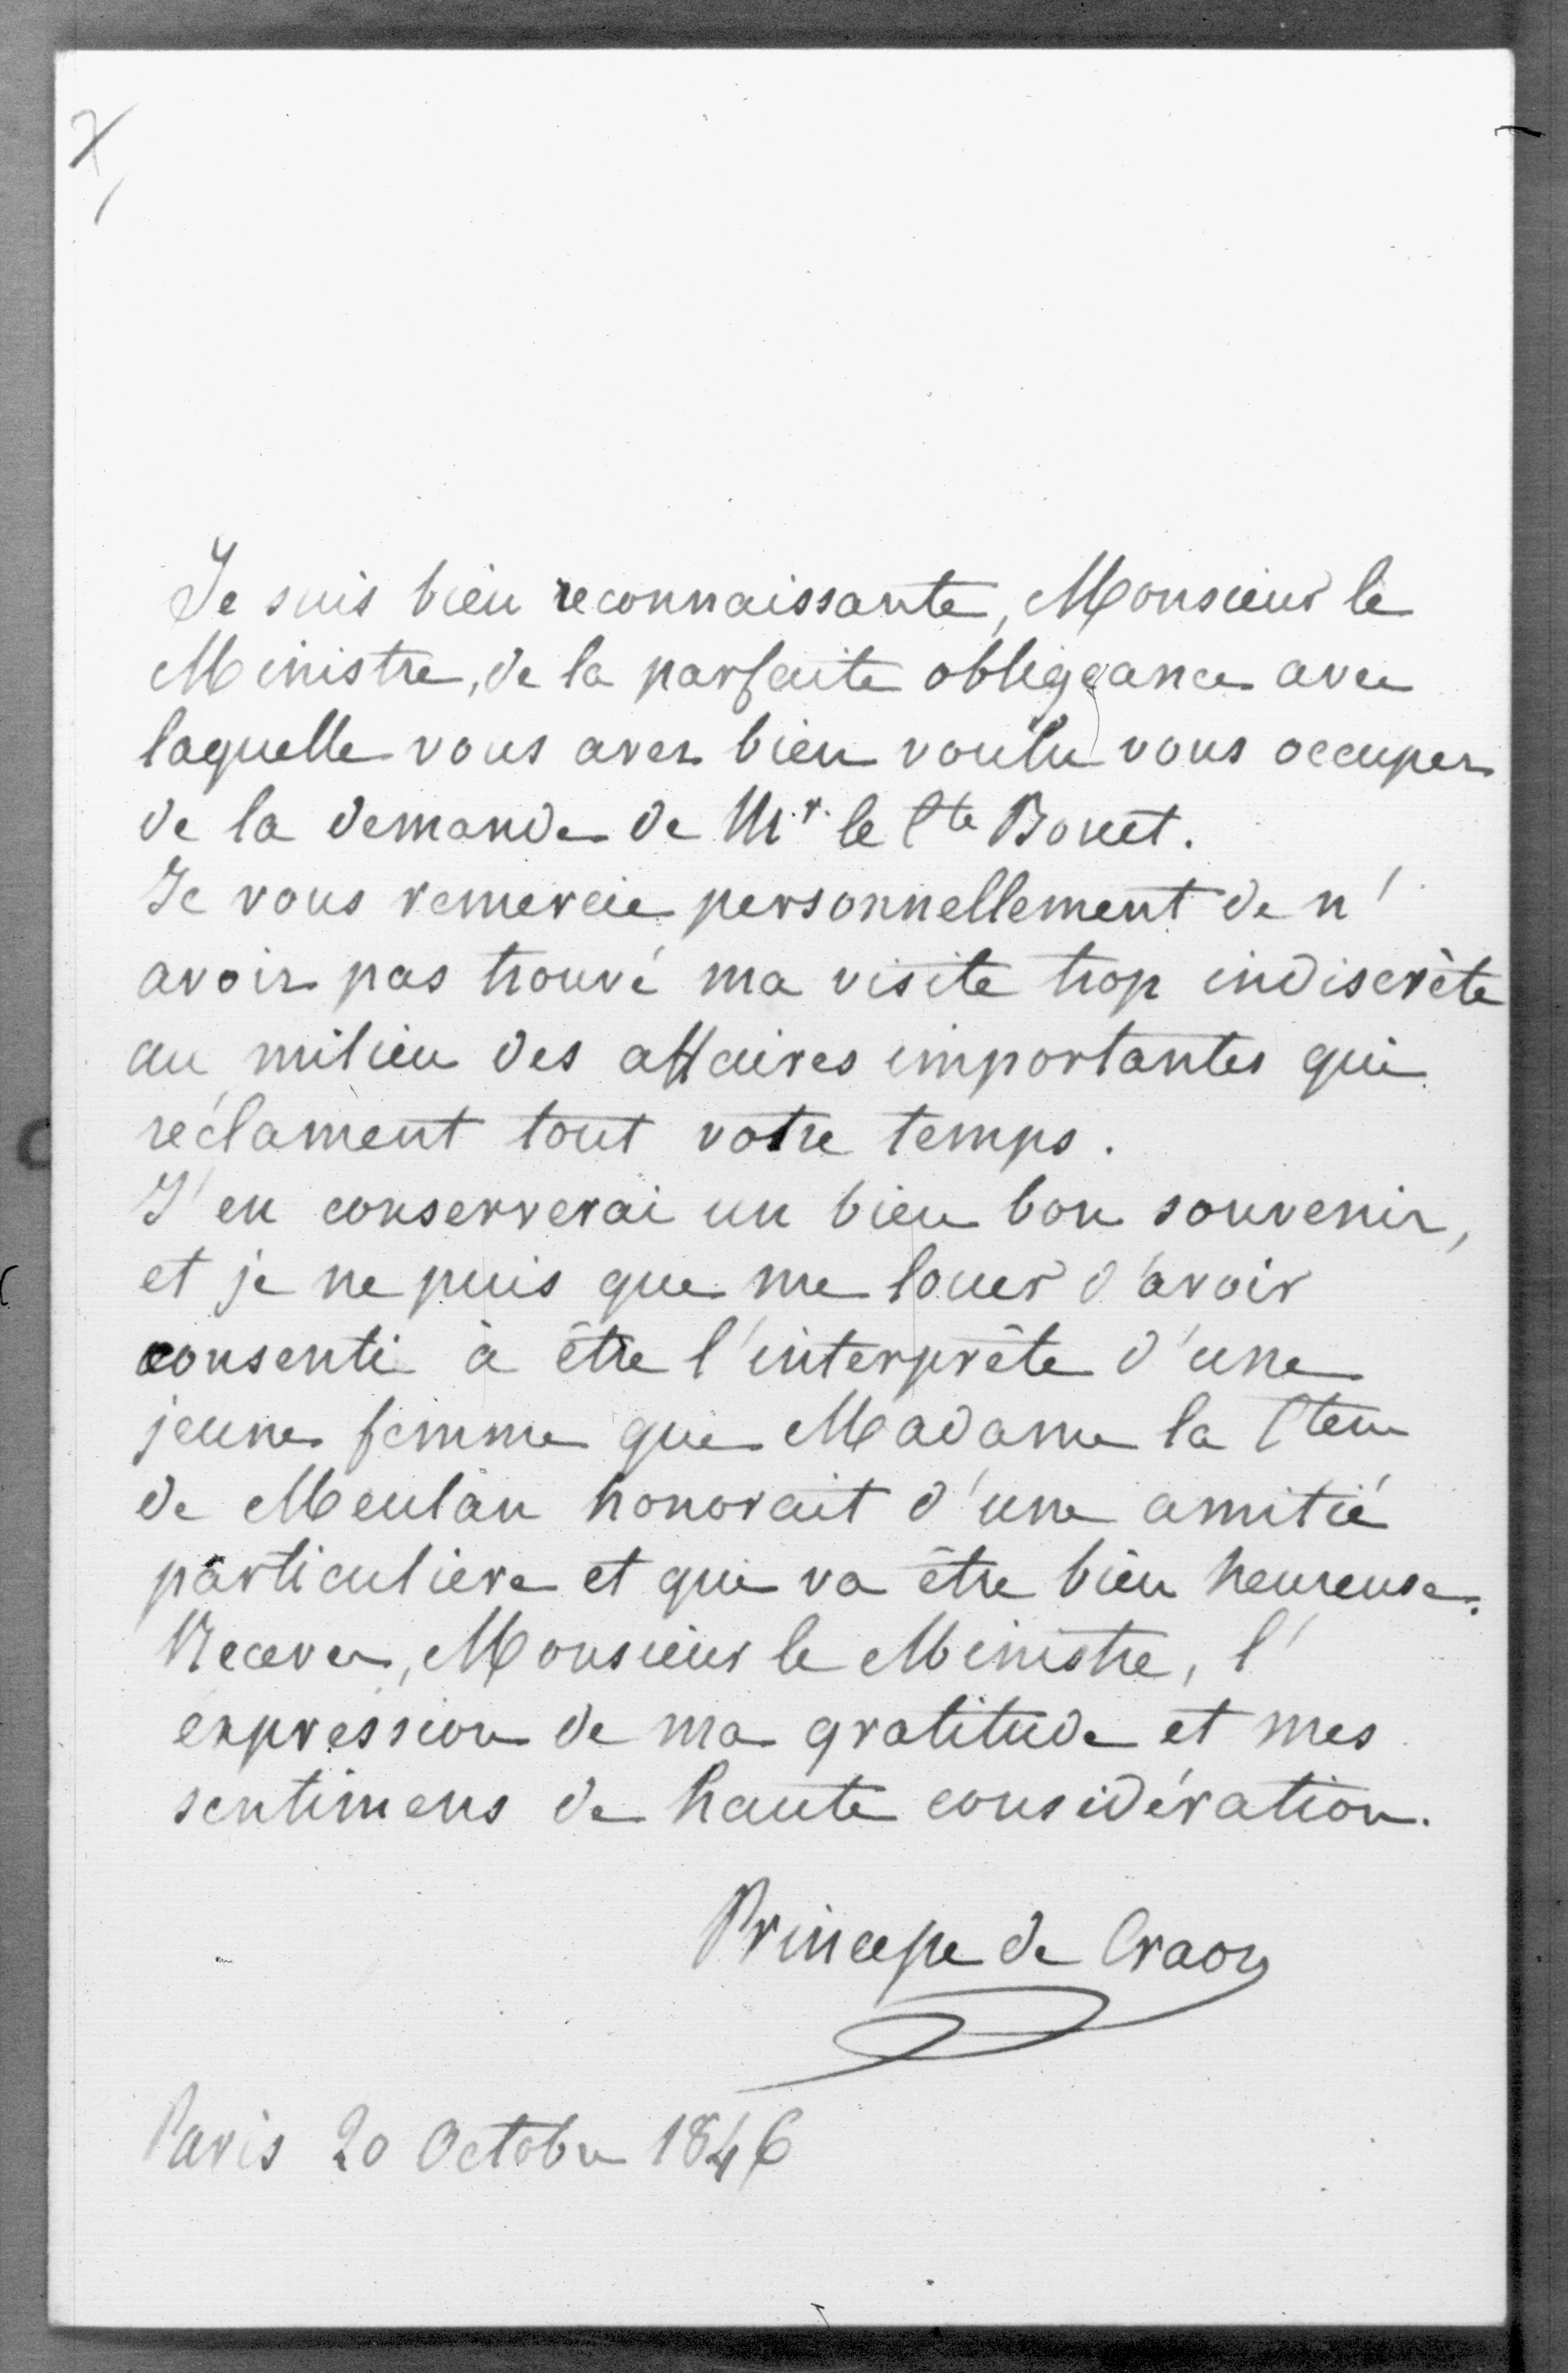 Je suis bien reconnaissante, Monsieur le
Ministre, de la parfaite obligeance avec
laquelle vous avez bien voulu vous occuper
de la demande de Mr. le Cte Bouet.
Je vous remercie personnellement de n'
avoir pas trouvé ma visite trop indiscrète
au milieu des affaires importantes qui
réclament tout votre temps.
J'en conserverai un bien bon souvenir,
et je ne puis que me louer d'avoir
consenti à être l'interprète d'une
jeune femme que Madame la Ctesse
de Meulan honorait d'une amitié
particuliere et qui va être bien heureuse.
Recevez, Monsieur le Ministre, l'
expression de ma gratitude et mes
sentimens de haute considération.
Princesse de Craon
Paris 20 Octobre 1846